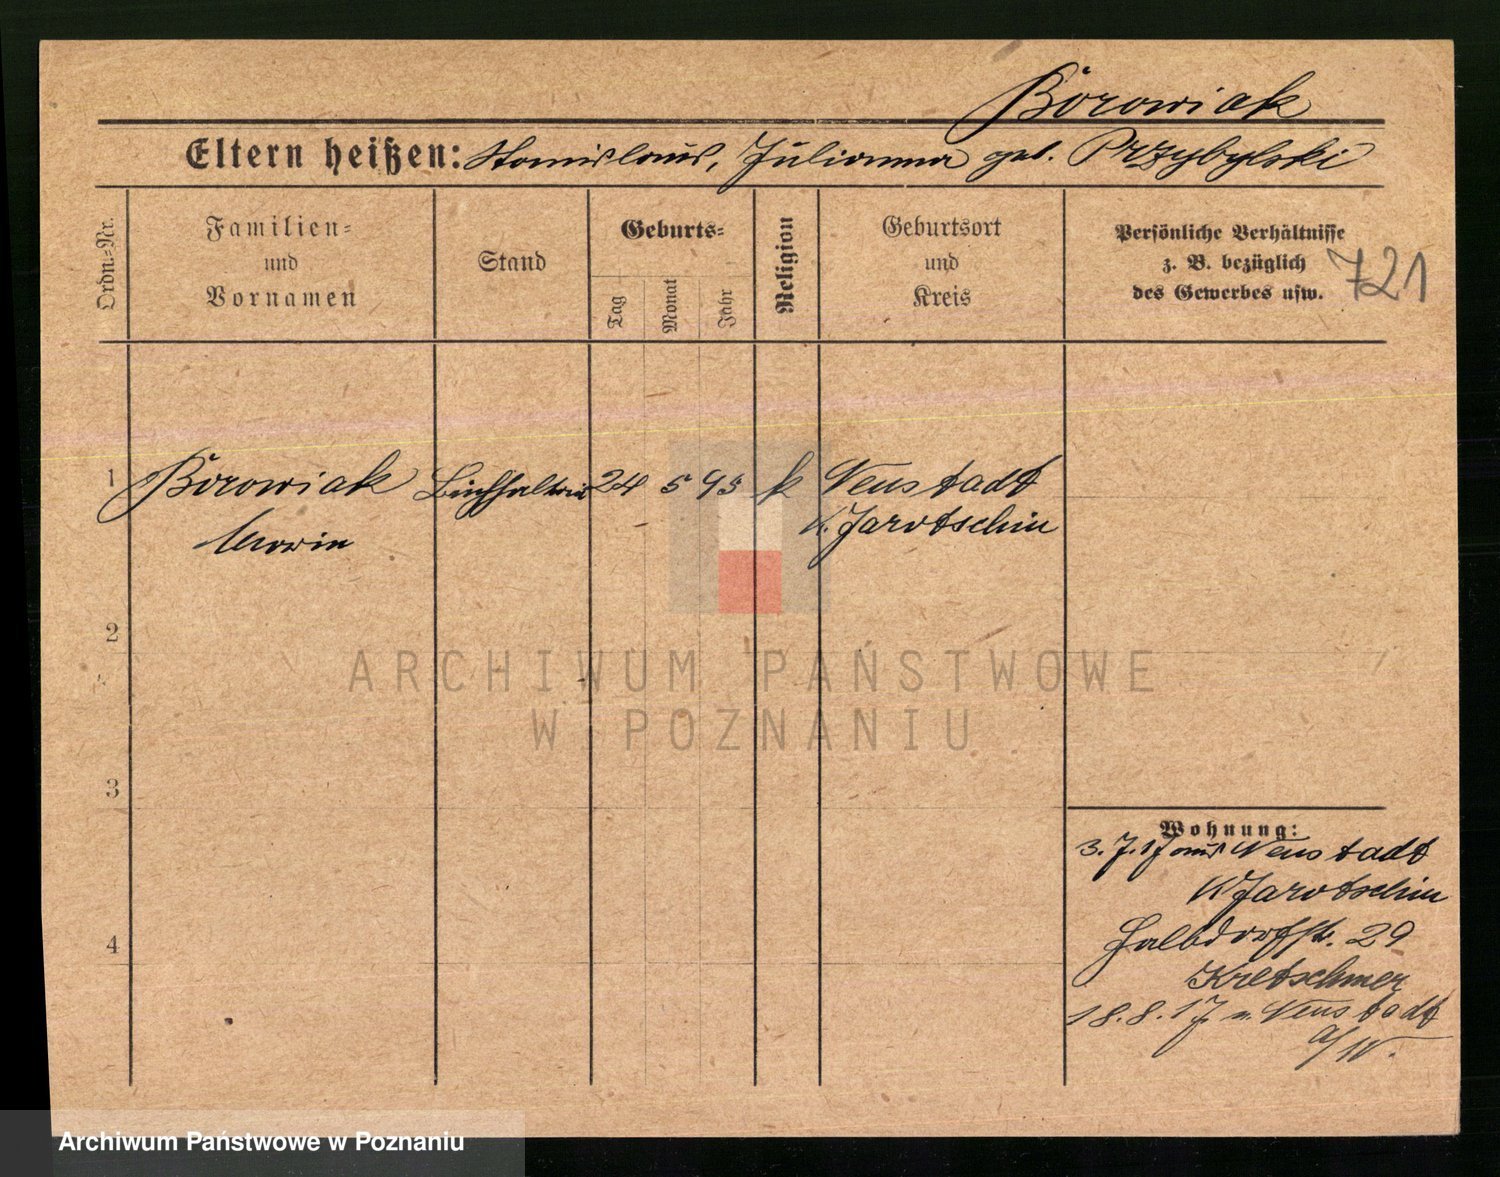 Borowiak
Eltern heißen: Stanislaus, Julianna geb. Przybylski
Ordn.-Nr.
Familien-
und
Vornamen
Stand
Geburts-
Tag
Monat
Jahr
Religion
Geburtsort
und
Kreis
Persönliche Verhältnisse
z. B. bezüglich
des Gewerbes usw.
721
1 Borowiak 24 5 95 k Neustadt
K. Jarotschin
2
3
4
Wohnung:
3.7.17 aus Neustadt
K Jarotschin
Halbdorfstr. 29
Kretschmer
18.8.17 n. Neustadt
a/W.
ARCHIWUM PAŃSTWOWE
W POZNANIU
Archiwum Państwowe w Poznaniu